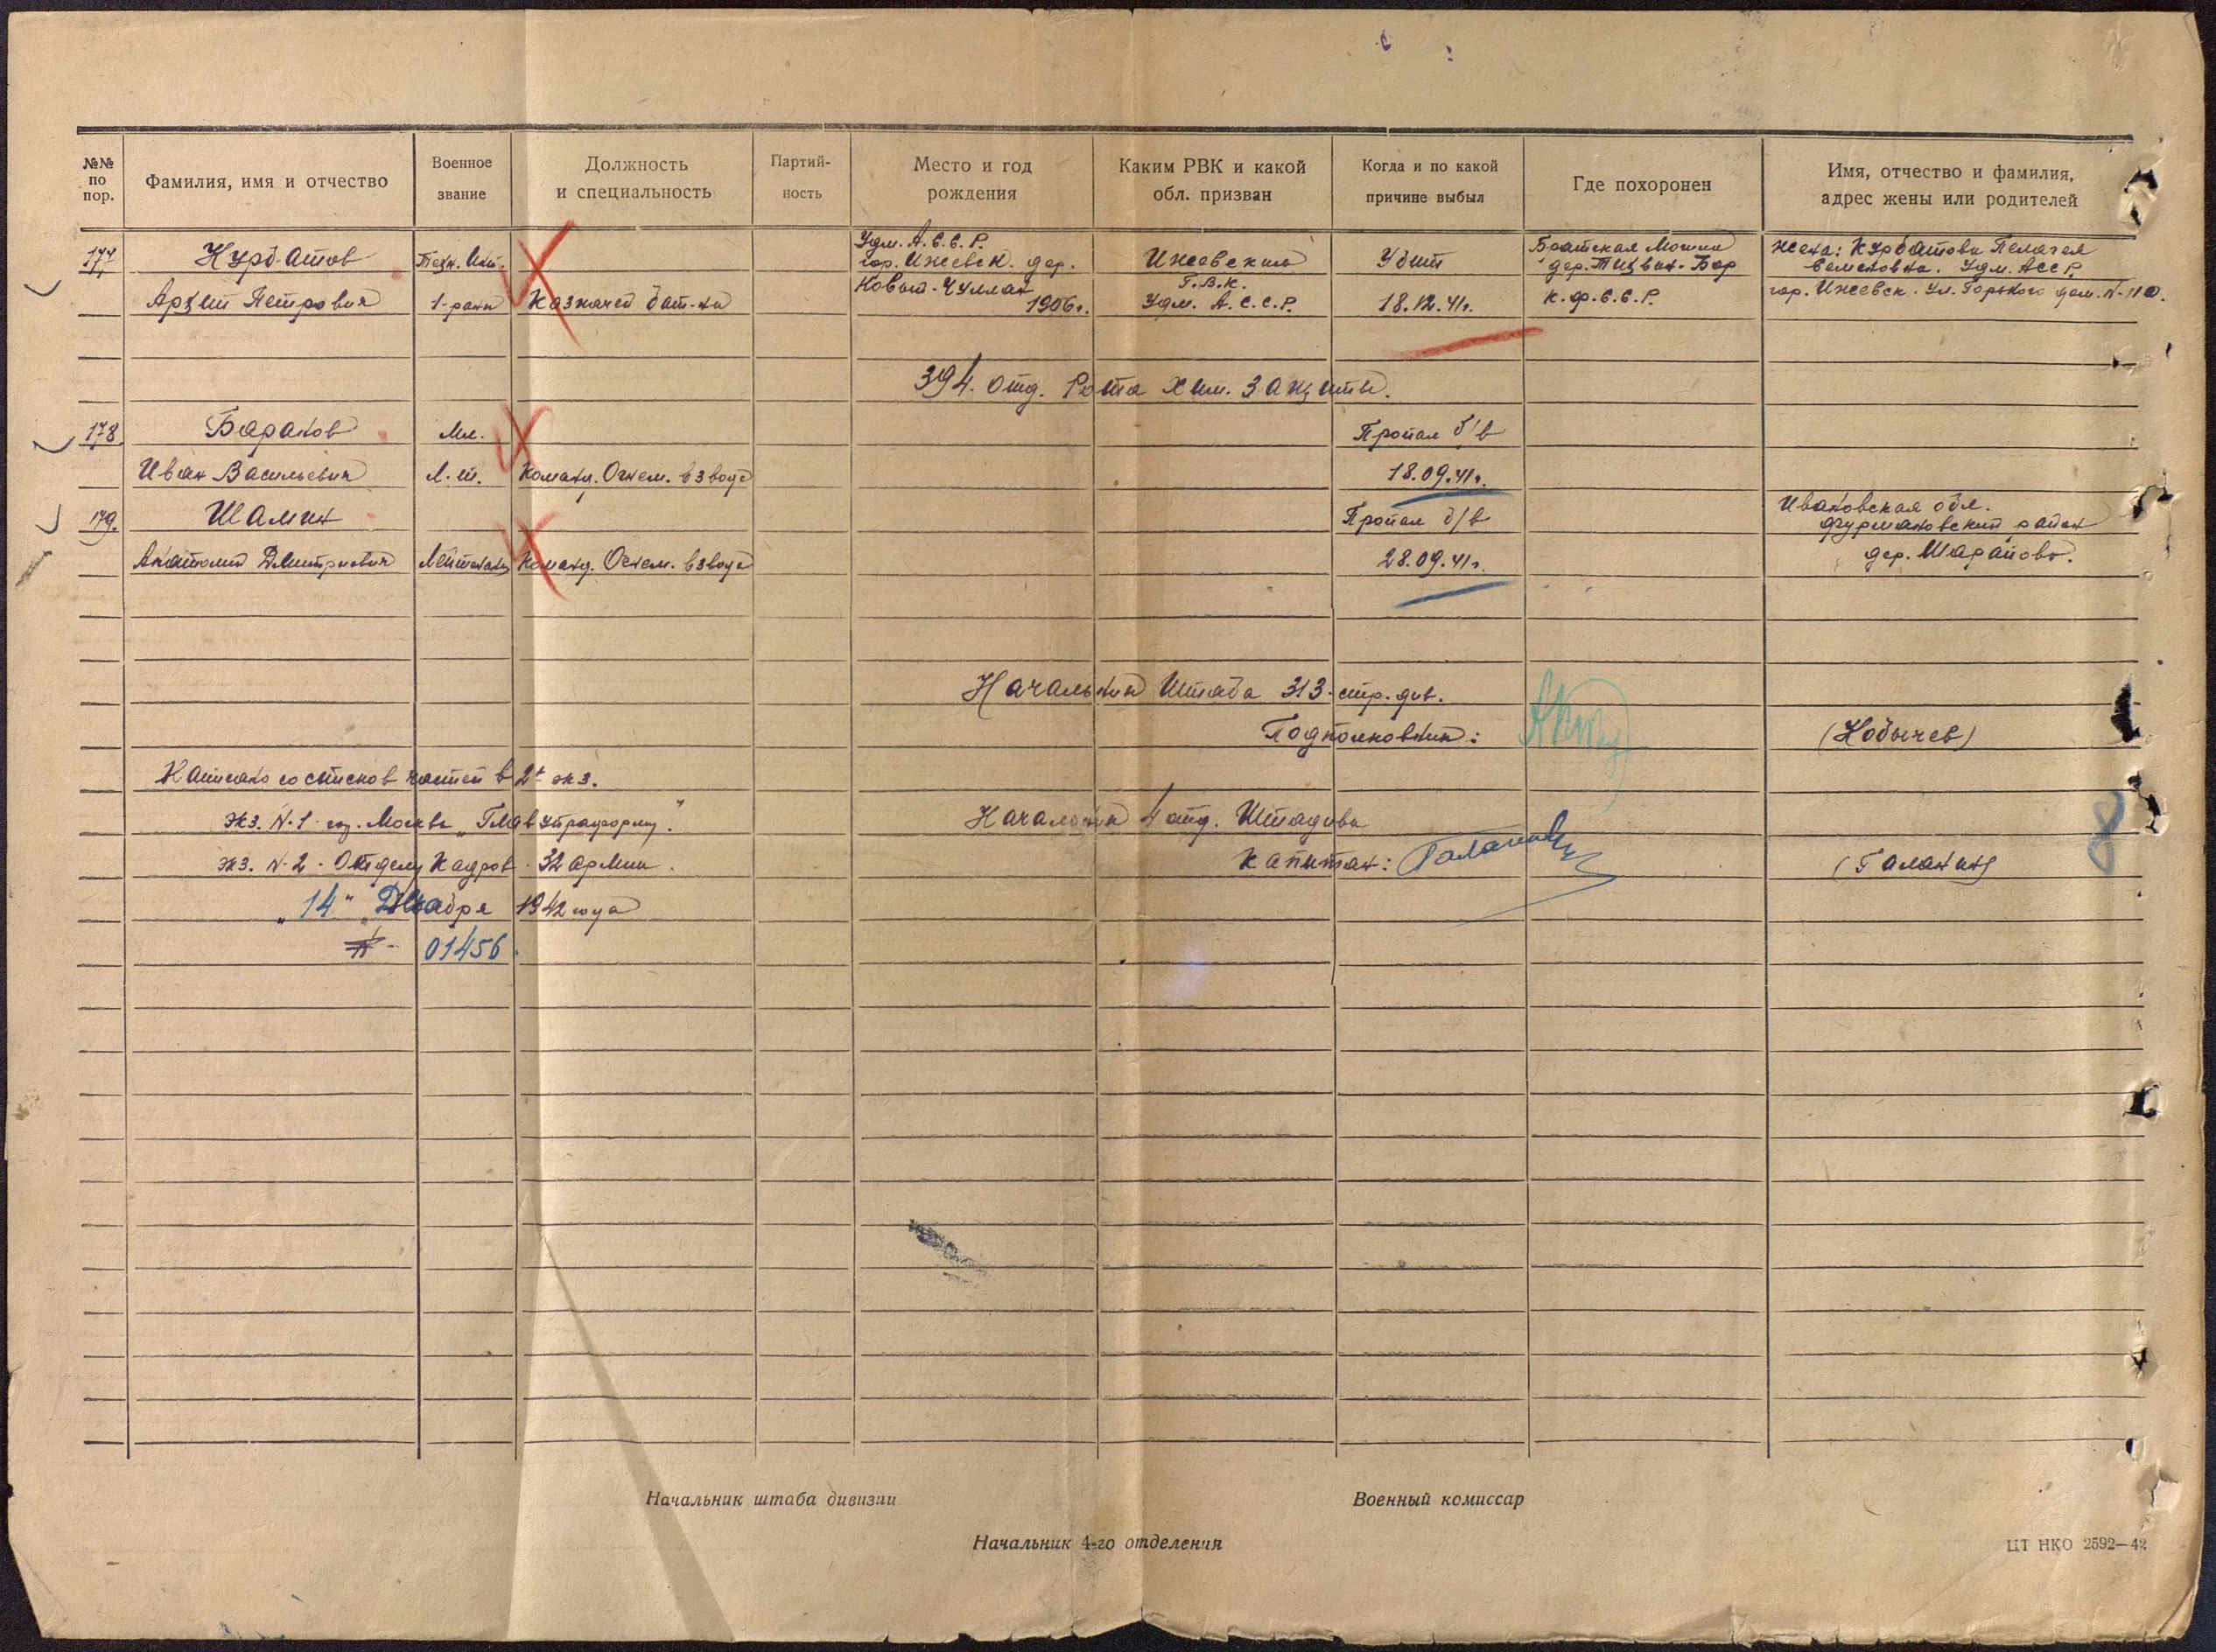 №№ по пор.
Фамилия, имя и отчество
Военное звание
Должность и специальность
Партий- ность
Место и год рождения
Каким РВК и какой обл. призван
Когда и по какой причине выбыл
Где похоронен
Имя, отчество и фамилия, адрес жены или родителей
177
Курбатов
Техн. Инт.
Удм. А.С.С.Р.
гор. Ижевск. дер.
Ижевским
Убит
Братская Могила
дер. Тихвин-Бор
Жена: Курбатова Пелагея
Семеновна. Удм. АССР.
Петрович
1-ранга
Казначей бат-на
1906г.
Г.В.К.
Удм. А.С.С.Р.
18.12.41г.
К.Ф.С.С.Р.
гор. Ижевск. Ул. Горького дом. N-110.
394. Отд. Рота Хим. Защиты.
178
Баранов
Мл.
Пропал б/в
Иван Васильевич
Л-т.
Команд. Огнем. взвода
18.09.41г.
179.
Шамин
Пропал б/в
Ивановская обл.
Фурмановский район
Анатолий Дмитриевич
Лейтенант
Команд. Огнем. взвода
28.09.41г.
дер. Шарапово.
Начальник Штаба 313. стр. див.
Подполковник:
Начальник 4 отд. Штадива
Капитан: Галанин
(Галанин)
Экз. N-1. гор. Москва „Главупраформу."
Экз. N-2. Отделу Кадров 32 армии.
„14" Декабря 1942 года
N- 01456
8
Начальник штаба дивизии
Военный комиссар
Начальник 4-го отделения
ЦТ НКО 2592—42